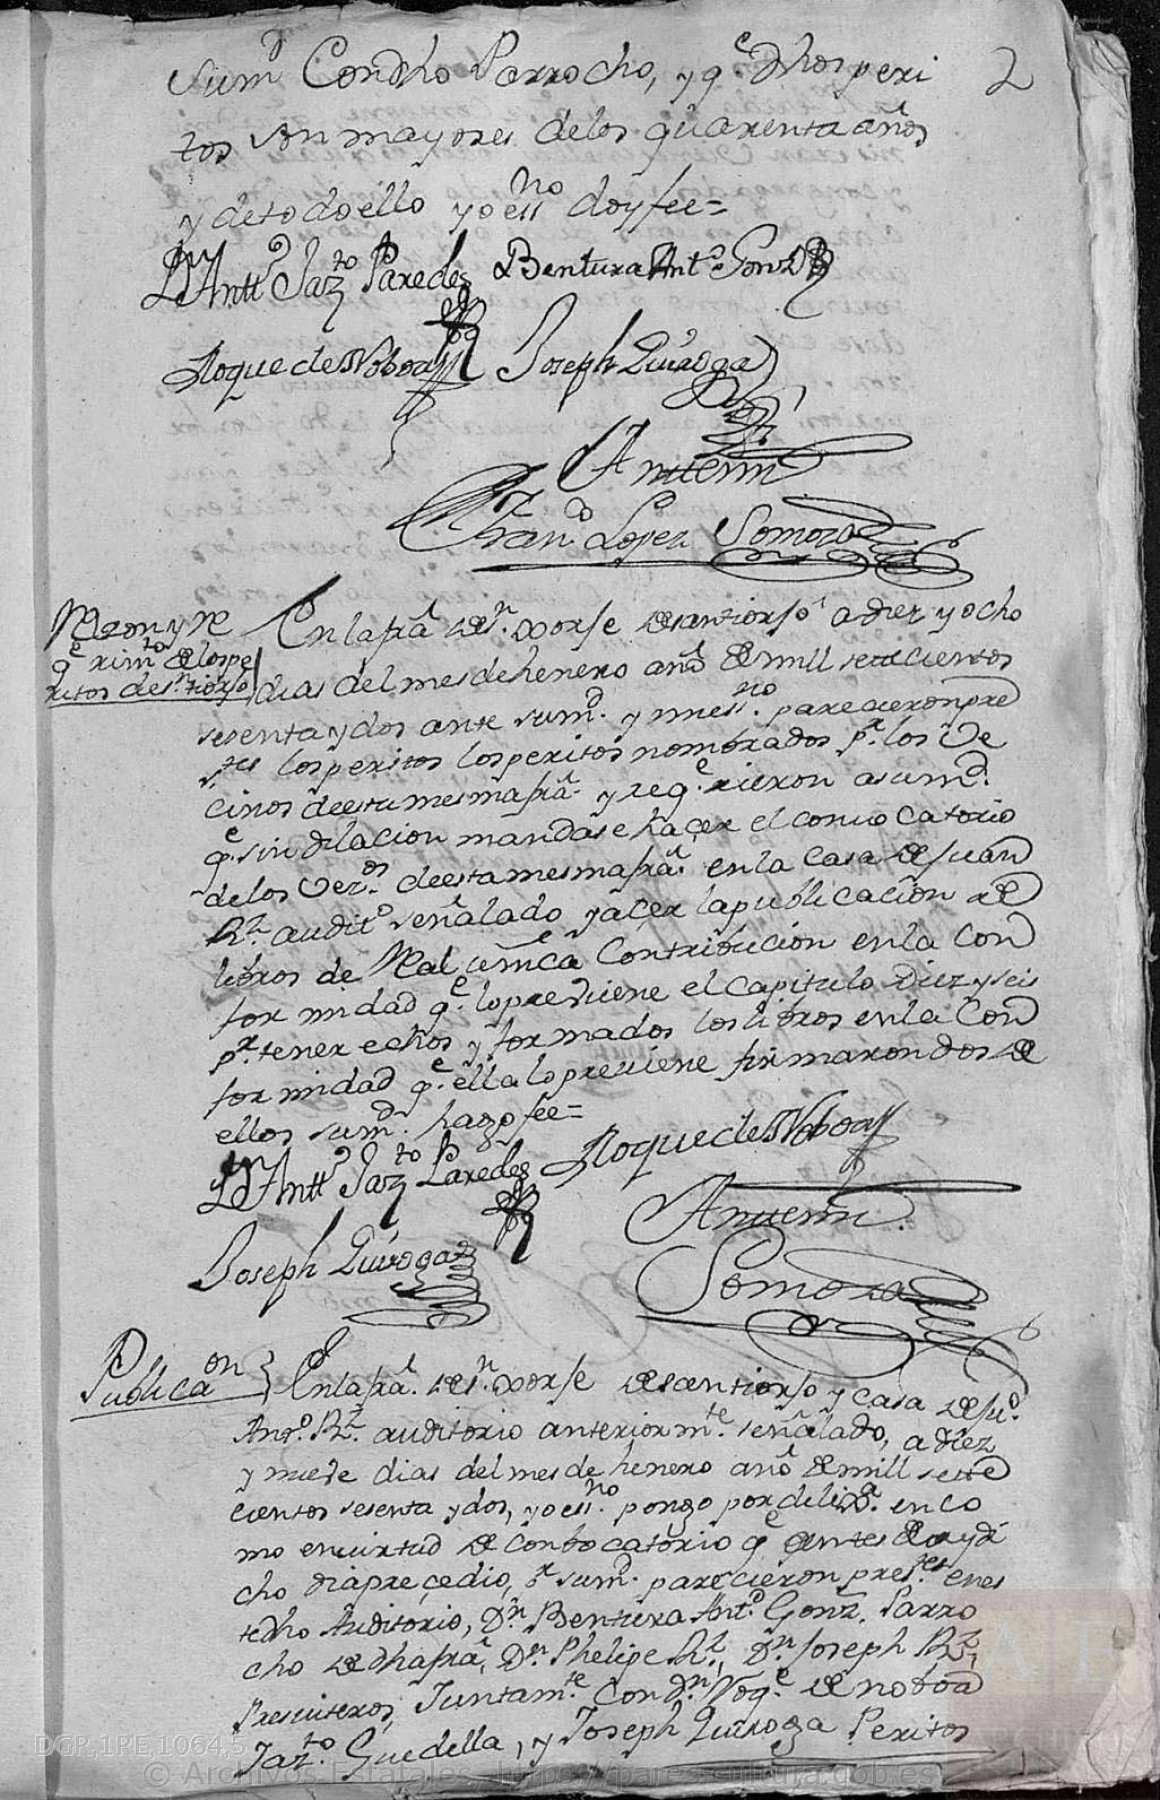 2
sumd Condho Parrocho, y qe dhos peri
tos son mayores delos quarenta años
y detodo ello yo essno doy fee=
Ldo Antto Jazto Paredes Bentura Anto Gonz
Roque de Noboa Joseph Quiroga
Antemi
Franco Lopez Somoza
Razon y re
qe rimto de los pe
ritos de sn tiorjo
En la fra de sn Jorje de santiorjo a diez y ocho
dias del mes de henero año de mill settecientos
sesenta y dos ante sumd. y mi essno. parecieron pre
stes los peritos los peritos nombrados pr. los Ve
cinos de esta mesma fra y reqe rieron a sumd.
qe. sin dilacion mandase haçer el convocatorio
de los Vezos. de esta mesma fra. en la Casa de Juan
Rz. auditto señalado y açer la publicacion de
libros de Real unica Contribucion en la Con
formidad qe. lo previene el Capitulo Diez y seis
pr. tener echos y formados los libros en la Con
formidad qe. ella lo previene firmaron dos de
ellos sumd. hago fee=
Ldo Antto Jazto Paredes Roque de Noboa
Antemi.
Joseph Quiroga
Somoza
Publicaon
En la fra. de sn. Jorje de santiorjo y casa de
Ango. Rz. auditorio anteriormte. señalado, a diez
y nueve dias del mes de henero año de mill sette
cientos sesenta y dos, yo essno. pongo por delixa. en co
mo en virtud de Conbocatorio qe antes de oy di
cho dia preçedio, a sumd. parecieron prestes en es
te dho Auditorio, Dn. Bentura Anto. Gonz. Parro
cho de dha fra, Dn. Phelipe Rz., Dn Joseph Rz,
Presviteros, Juntamte. Con Dn. Roqe. de noboa
Jazto. Guedella, y Joseph Quiroga Peritos
DGR,1RE,1064,5
© Archivos Estatales, https://pares.cultura.gob.es